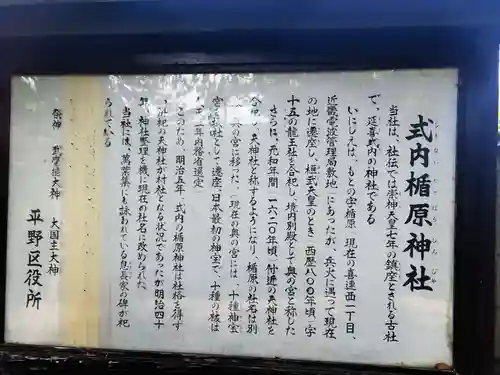 式内楯原神社
しきないたてはらじんじゃ
当社は、社伝では崇神天皇七年の鎮座とされる古社
で、延喜式内の神社である
いにしえは、もとの字楯原、現在の喜連西一丁目、
近畿電波管理局敷地にあったが、兵火に遇って現在
の地に遷座し、桓武天皇のとき、西歴八〇〇年頃、字
十五の龍王社を合祀し、境内別殿として奥の宮と称した
さらに、元和年間、一六二〇年頃、付近の天神社を
合祀し、天神社と称するようになり、楯原の社名は別
の宮に移った。現在の奥の宮には、十種神宝
宮を本社として遷座、日本最初の神宝で、十種の祓は
年内務省選定
このため、明治五年、式内の楯原神社は社格を得ず
に合祀の天神社が村社となる状況であったが明治四十
年、神社整理を機に現在の社名に改められた。
当社には、萬葉集にも詠われている息長家の碑が祀
られている
祭神 大国主大神
平野区役所